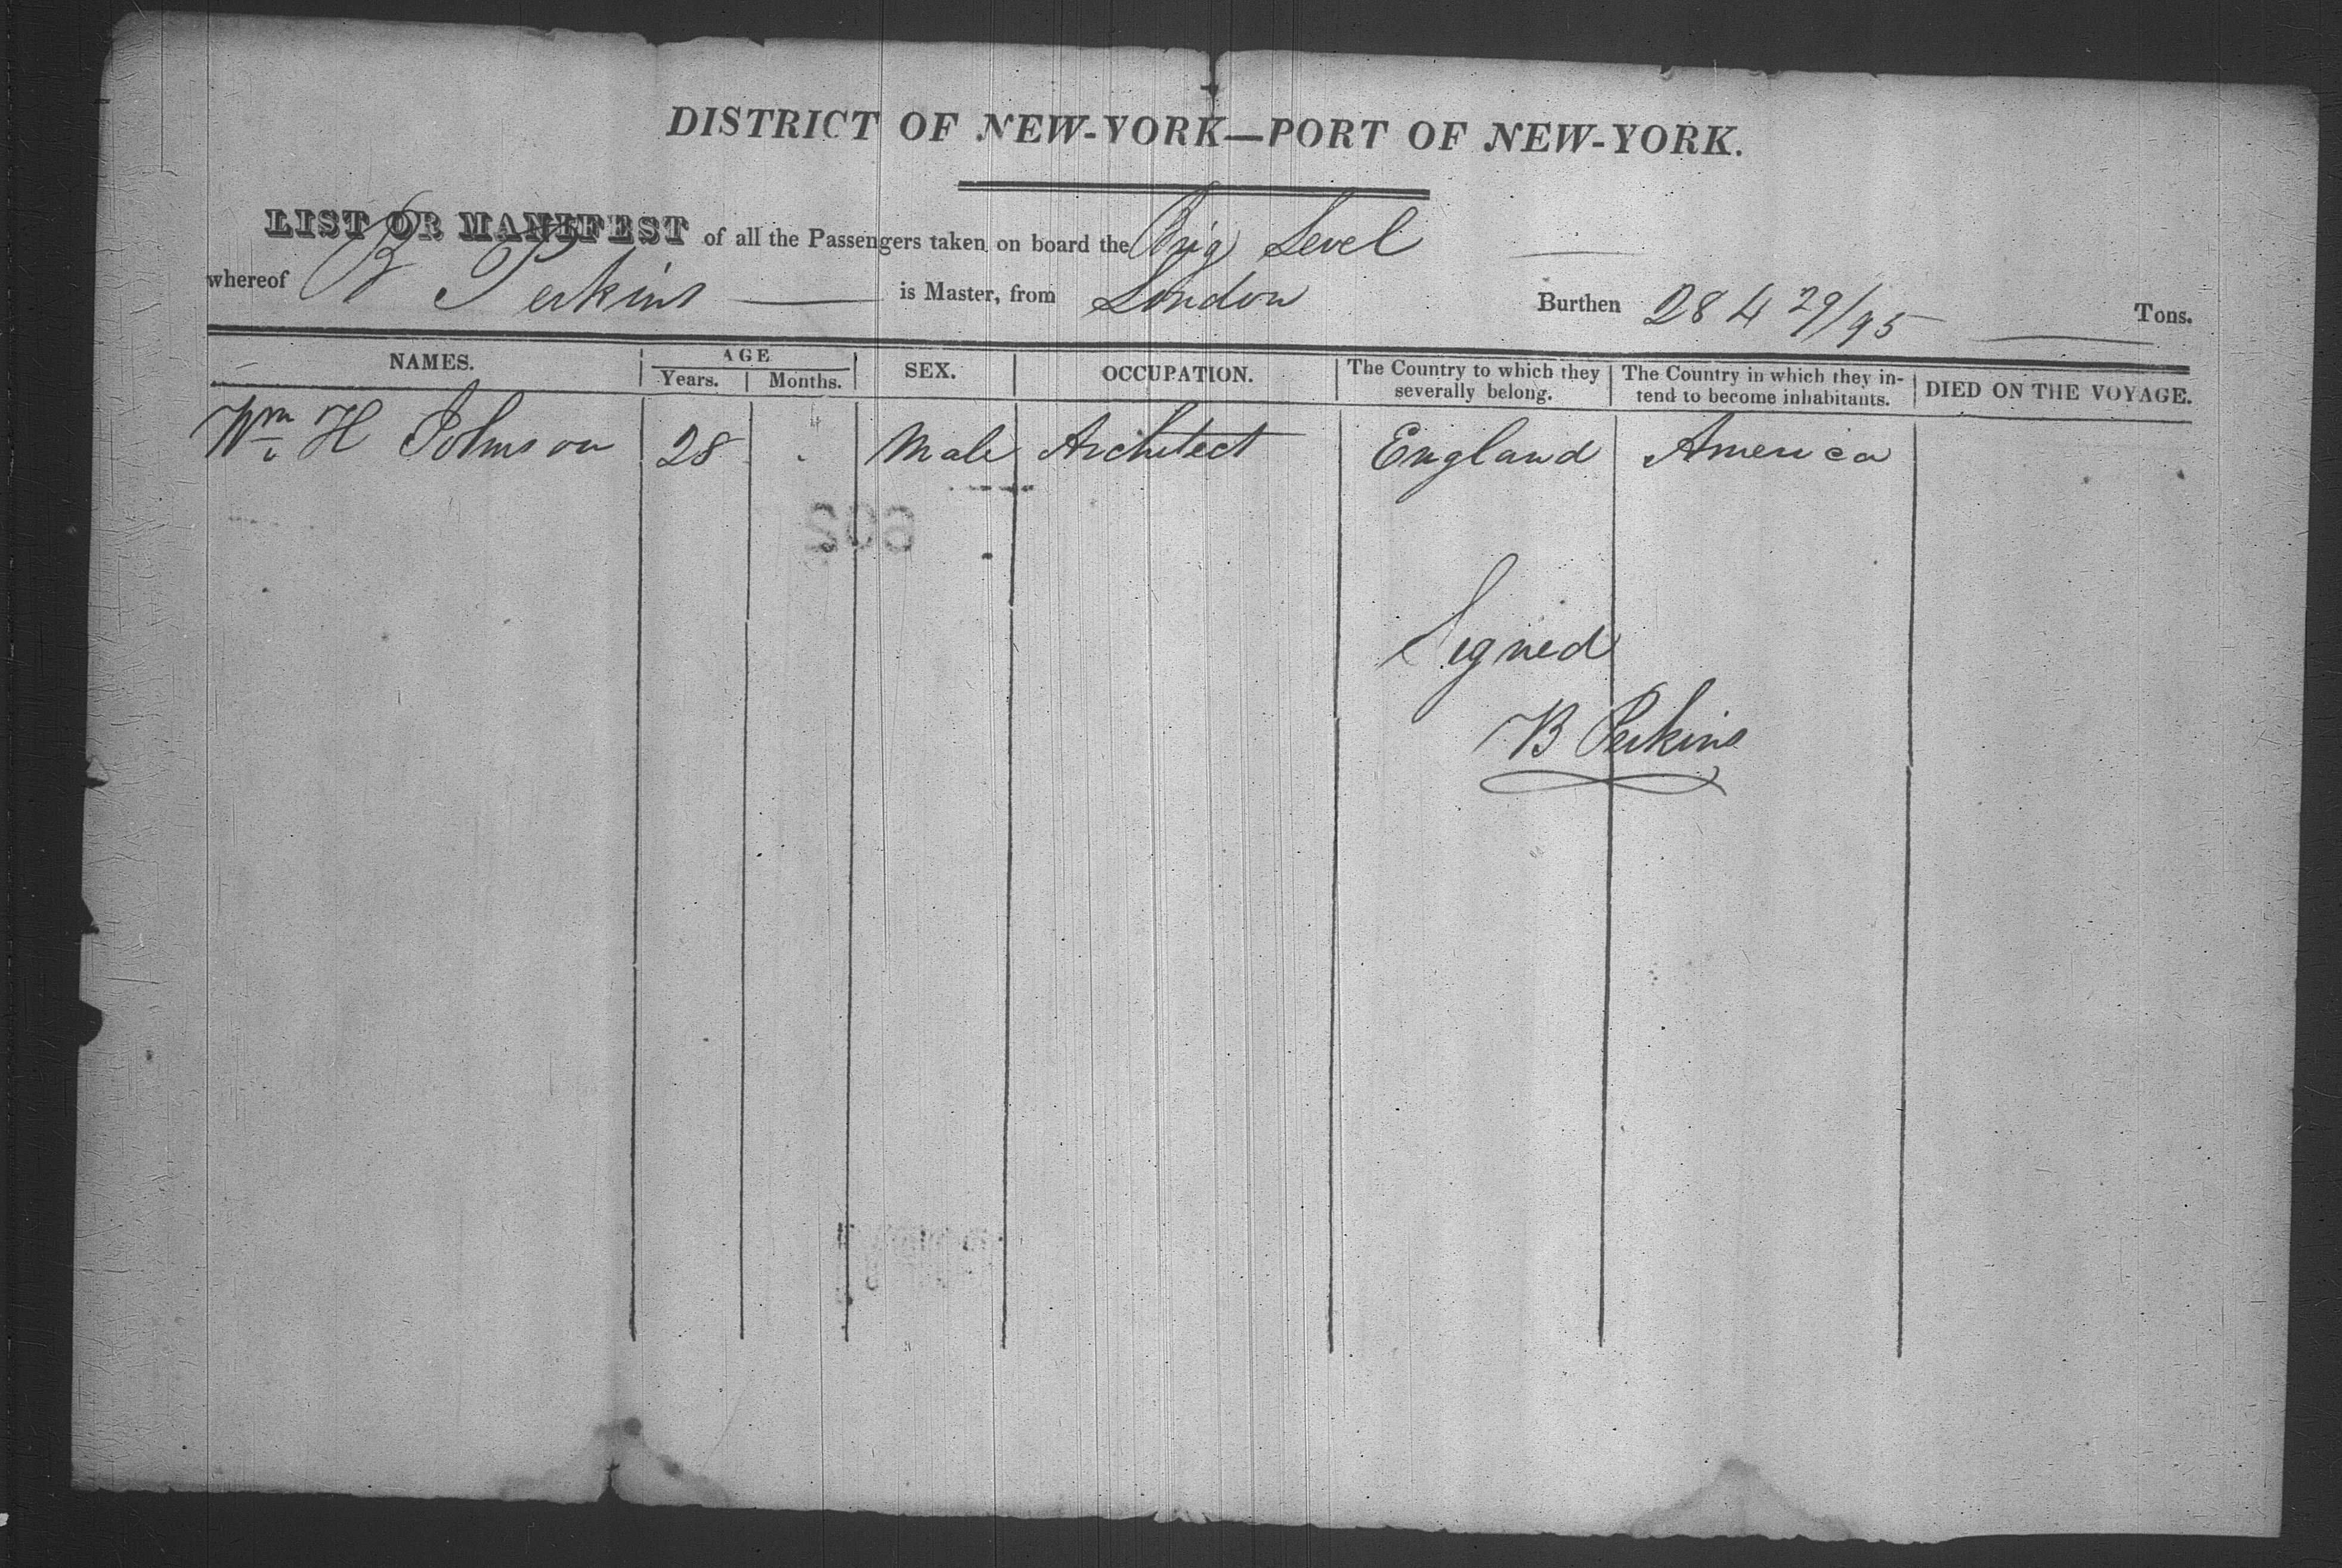 DISTRICT OF NEW-YORK—PORT OF NEW-YORK.
LIST OR MANIFEST of all the Passengers taken on board the Brig Level
whereof B Perkins is Master, from London Burthen 284 29/95 Tons.
NAMES. AGE Years. Months. SEX. OCCUPATION. The Country to which they severally belong. The Country in which they intend to become inhabitants. DIED ON THE VOYAGE.
Wm H Johnson 28 Male Architect England America
Signed
B Perkins